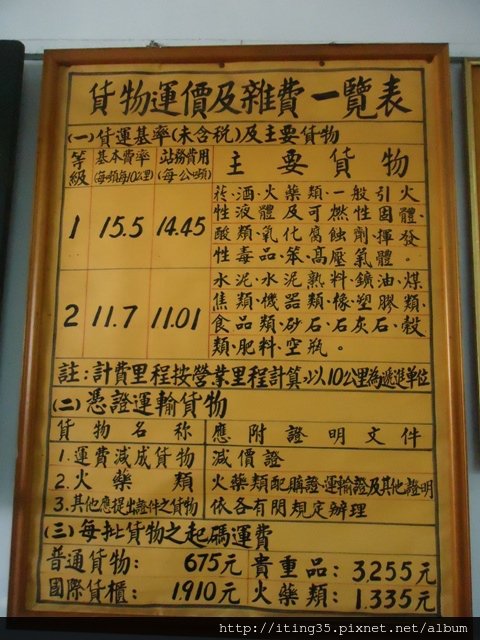 貨物運價及雜費一覽表
(一)貨運基率(未含稅)及主要貨物
等級 基本費率(每噸每10公里) 站務費用(每公噸) 主要貨物
1 15.5 14.45
菸、酒、火藥類、一般引火
性液體及可燃性固體、
酸類、氧化腐蝕劑、揮發
性毒品、苯、高壓氣體。
2 11.7 11.01
水泥、水泥熟料、鑛油、煤
焦類、機器類、橡塑膠類、
食品類、砂石、石灰石、穀
類、肥料、空瓶。
註:計費里程按營業里程計算,以10公里為遞進單位
(二)憑證運輸貨物
貨物名稱 應附證明文件
1.運費減成貨物 減價證
2.火藥類 火藥類配購證、運輸證及其他證明
3.其他應提出證件之貨物 依各有關規定辦理
(三)每批貨物之起碼運費
普通貨物: 675元 貴重品: 3,255元
國際貨櫃: 1910元 火藥類: 1.335元
http://iting35.pixnet.net/album